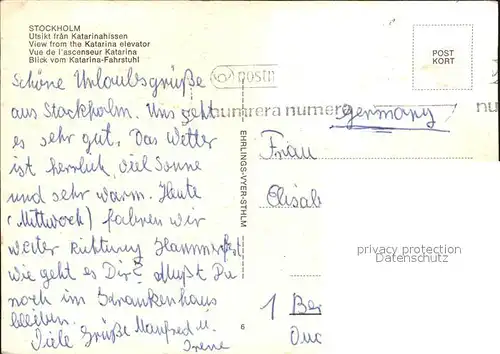 STOCKHOLM
Utsikt från Katarinahissen
View from the Katarina elevator
Vue de l'ascenseur Katarina
Blick vom Katarina-Fahrstuhl
Schöne Urlaubsgrüße
aus Stockholm. Uns geht
es sehr gut. Das Wetter
ist herrlich, viel Sonne
und sehr warm. Heute
(Mittwoch) fahren wir
weiter Richtung Hammerfest
wie geht es Dir? Mußt Du
noch im Krankenhaus
bleiben.
Viele Grüße Manfred u.
Irene
EHRLINGS-VYER-STHLM
6
posten
numrera numrera
nu
POST
KORT
Germany
Frau
Elisab
1 Ber
privacy protection
Datenschutz